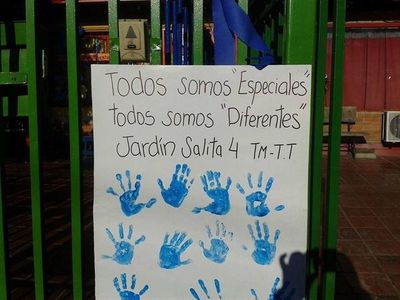 Todos somos "Especiales"
todos somos "Diferentes"
Jardín Salita 4 TM-T.T